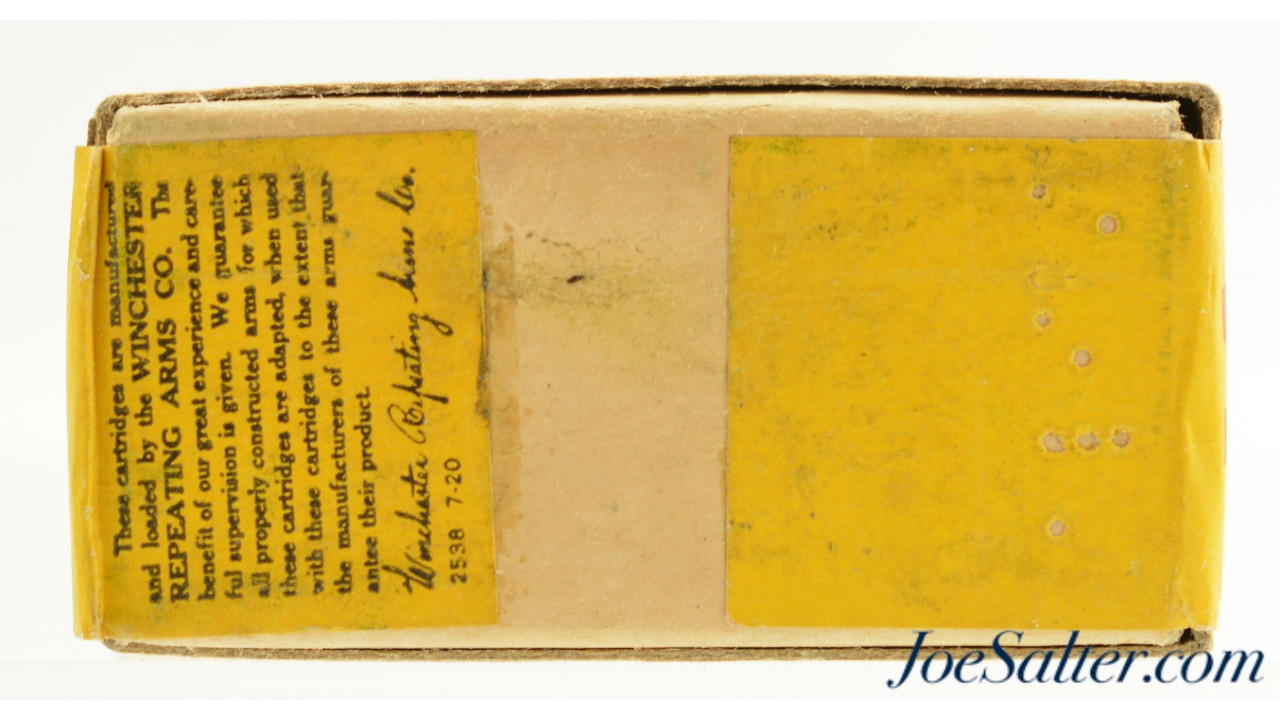 These cartridges are manufactured
and loaded by the WINCHESTER
REPEATING ARMS CO. The
benefit of our great experience and care-
ful supervision is given. We guarantee
all properly constructed arms for which
these cartridges are adapted, when used
with these cartridges to the extent that
the manufacturers of these arms guar-
antee their product.
Winchester Repeating Arms Co.
2538 7-20
JoeSalter.com